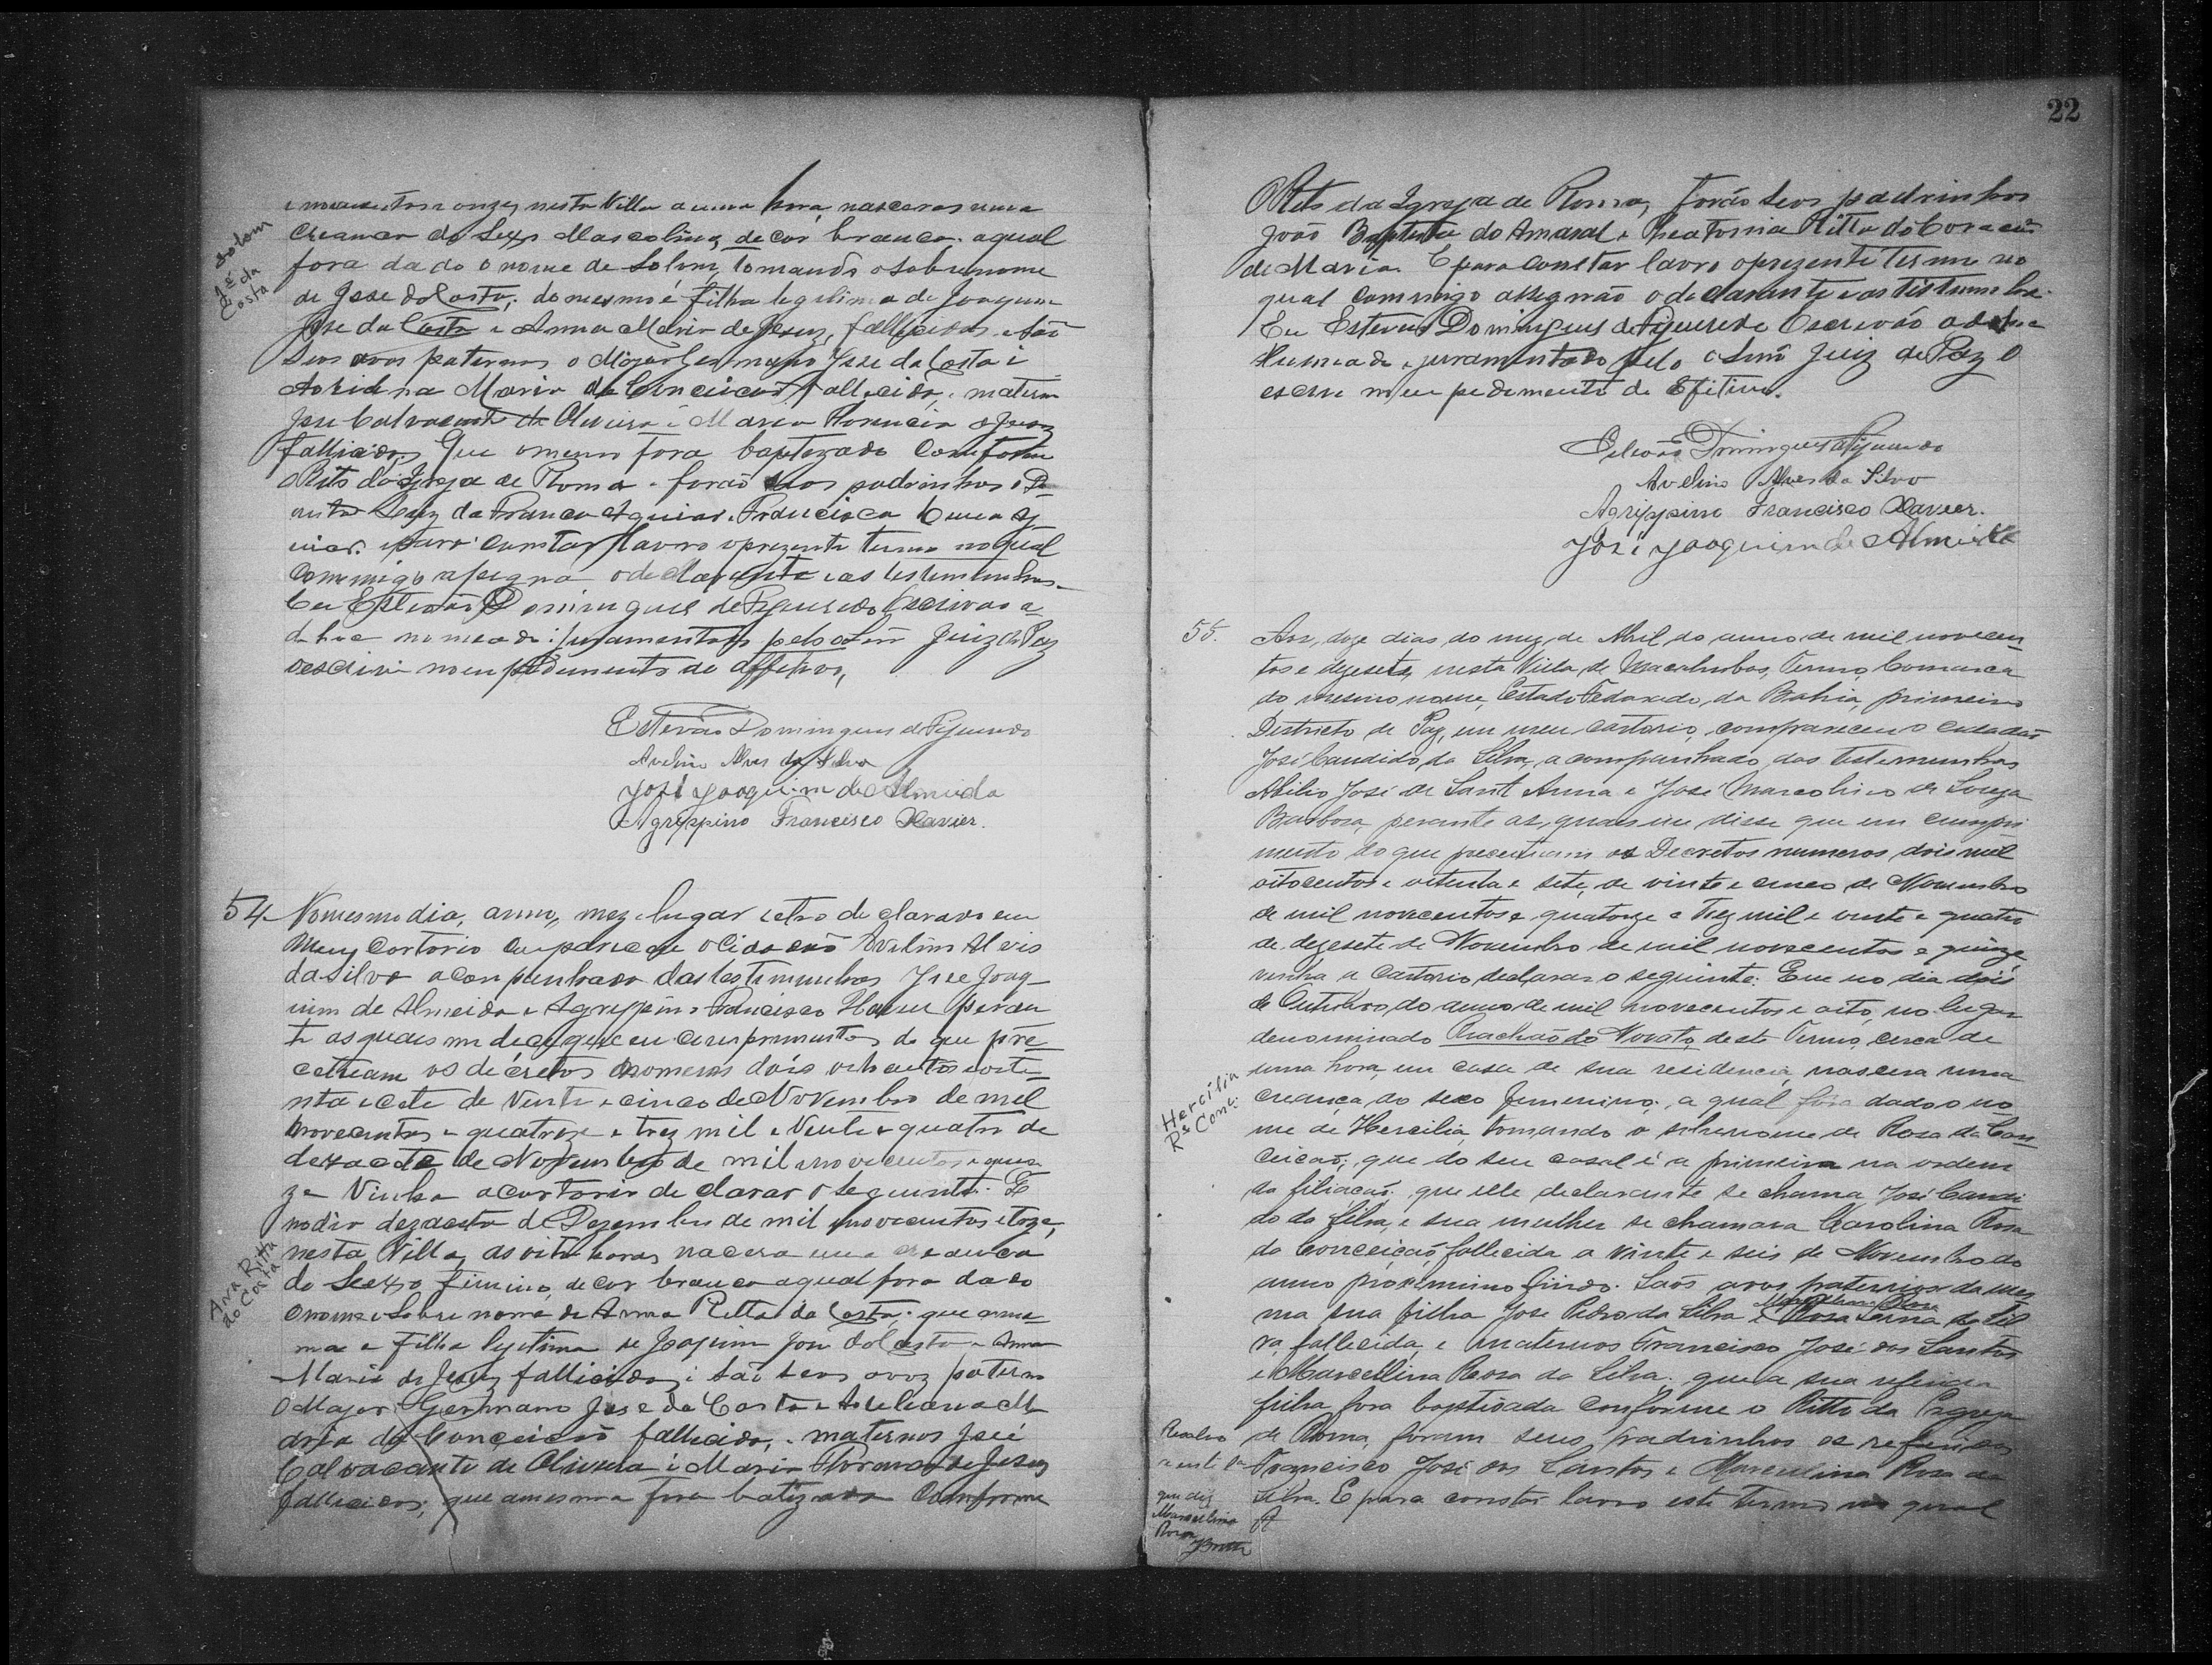 22
Solom
José da
Costa
e novecentos e onze, nesta Villa a uma hora, nascera uma
creança do Sexo Mascolino, de cor branca. aqual
fora dado o nome de Solom, tomando o sobrenome
de Jose da Costa; do mesmo é filho legitimo de Joaquim
Jose da Costa e Anna Maria de Jesus, fallecidos, e são
seus avos paternos o Major Germano Jose da Costa e
Maria da Conceicão fallecida, e materno
Jose Calvacante de Oliveira e Maria de Jesus
fallecidos, Que o mesmo fora baptezado Conforme
o Rito da Igreja de Roma e forão seos padrinhos o
da Franca Aguiar e Francisca
e para constar lavro o prezente termo no qual
Commigo assigna o declarante e as testemunhas.
Eu Estevão Domingues de Figueredo Escrivão a
d hoc nomeado e juramentado pelo Juiz de Paz
o escrivi no empedimento do effetivo,
Estevão Domingues de Figueredo
Avelino Alves da Silva
José Joaquim de Almeida
Agrippino Francisco Xavier.
54 Nomesmo dia, anno, mez e lugar retro declarado em
Meu Cartorio compareceu o Cidadão Avelino Alves
da Silva acompanhado das testimunhas Jose Joaq-
uim de Almeida e Agrippino Francisco Xavier peran
te as quais me disse que em cumprimento do que pre-
ceituam os decretos nomeros dois oitocentos e oite-
nta e cete de Vinte e cinco de Novembro de mil
novecentos e quatroze e trez mil e Vinte e quatro de
dezacete de Novembro de mil novecentos e quin
ze Vinha a cartorio declarar o seguinte. Q
no dia de Dezembro de mil novecentos e treze,
nesta Villa, as oito horas nacera uma creanca
Anna Ritta
da Costa
do Sexso Fimino, de cor branca aqual fora dado
o nome e Sobre nome de Anna Ritta da Costa; que a mes
ma e Filha legitima de Joaquim José da Costa e Anna
Maria de Jesus fallicidos, e são seos avoz paterno
o Major Germano Jose da Costa e Ma
aria da Conceicão fallicida, e maternos José
Calvacante de Oliveira e Maria de Jesus
fallicidos; que amesma fora batizada Comforme
O Rito da Igreja de Roma, forão seos padrinhos
João Baptista do Amaral e Ritta do Coração
de Maria. E para constar lavro o prezente termo no
qual commigo assegnão o declarante e as tistimunhas.
Eu Estevão Domingues de Figueredo Escrivão ad hoc
Numeado e juramentado pelo Juiz de Paz O
escrevi no em pedimento do Efitivo.
Estevão Domingues de Figueredo
Avelino Alves da Silva
Agrippino Francisco Xavier.
José Joaquim de Almeida
55. Aos, doze dias do mez, de Abril do anno de mil novecen
tos e dezesete, nesta Villa de Macahubas, Termo, Comarca
do mesmo nome, Estado Federado da Bahia, primeiro
Destricto de Paz, em meu cartorio, compareceu o cidadão
José Candido da Silva, acompanhado das testemunhas
Abilio José de Sant Anna e José Marcolino de Souza
Barbosa, perante as quaes me disse que em cumpri
mento do que preceituam os Decretos numeros dois mil
oitocentos e oitenta e sete, de vinte e cinco de Novembro
de mil novecentos e quatorze e Trez mil e vinte e quatro
de dezesete de Novembro de mil novecentos e quinze
vinha a Cartorio declarar o seguinte: Que no dia dois
de Outubro do anno de mil novecentos e oito, no lugar
denominado Riachão do Novato, deste Termo, cerca de
uma hora, em casa de sua residencia, nascera uma
Hercilia
Rª Conc:
creança do sexo femenino, a qual fora dado o no
me de Hercilia, tomando o sobrenome de Rosa da Con
ceicão; que do seu casal é a primeira na ordem
da filiação, que elle declarante se chama José Candi
do da Silva, e sua mulher se chamara Carolina Rosa
da Conceição, fallecida a vinte e seis de Novembro do
anno proximo findo. Saõs avos paternos da mes
ma sua filha José Pedro da Silva e Rosa da Sil
va, fallecida, e maternos Francisco José dos Santos
e Marcellina Rosa da Silva; que a sua referida
filha fora baptisada conforme o Ritto da Egreja
de Roma, foram seus padrinhos os referidos
Francisco José dos Santos e Marcellina Rosa da
Silva. E para constar lavro este termo no qual
Resalvo
que diz
Marcellina
Rosa